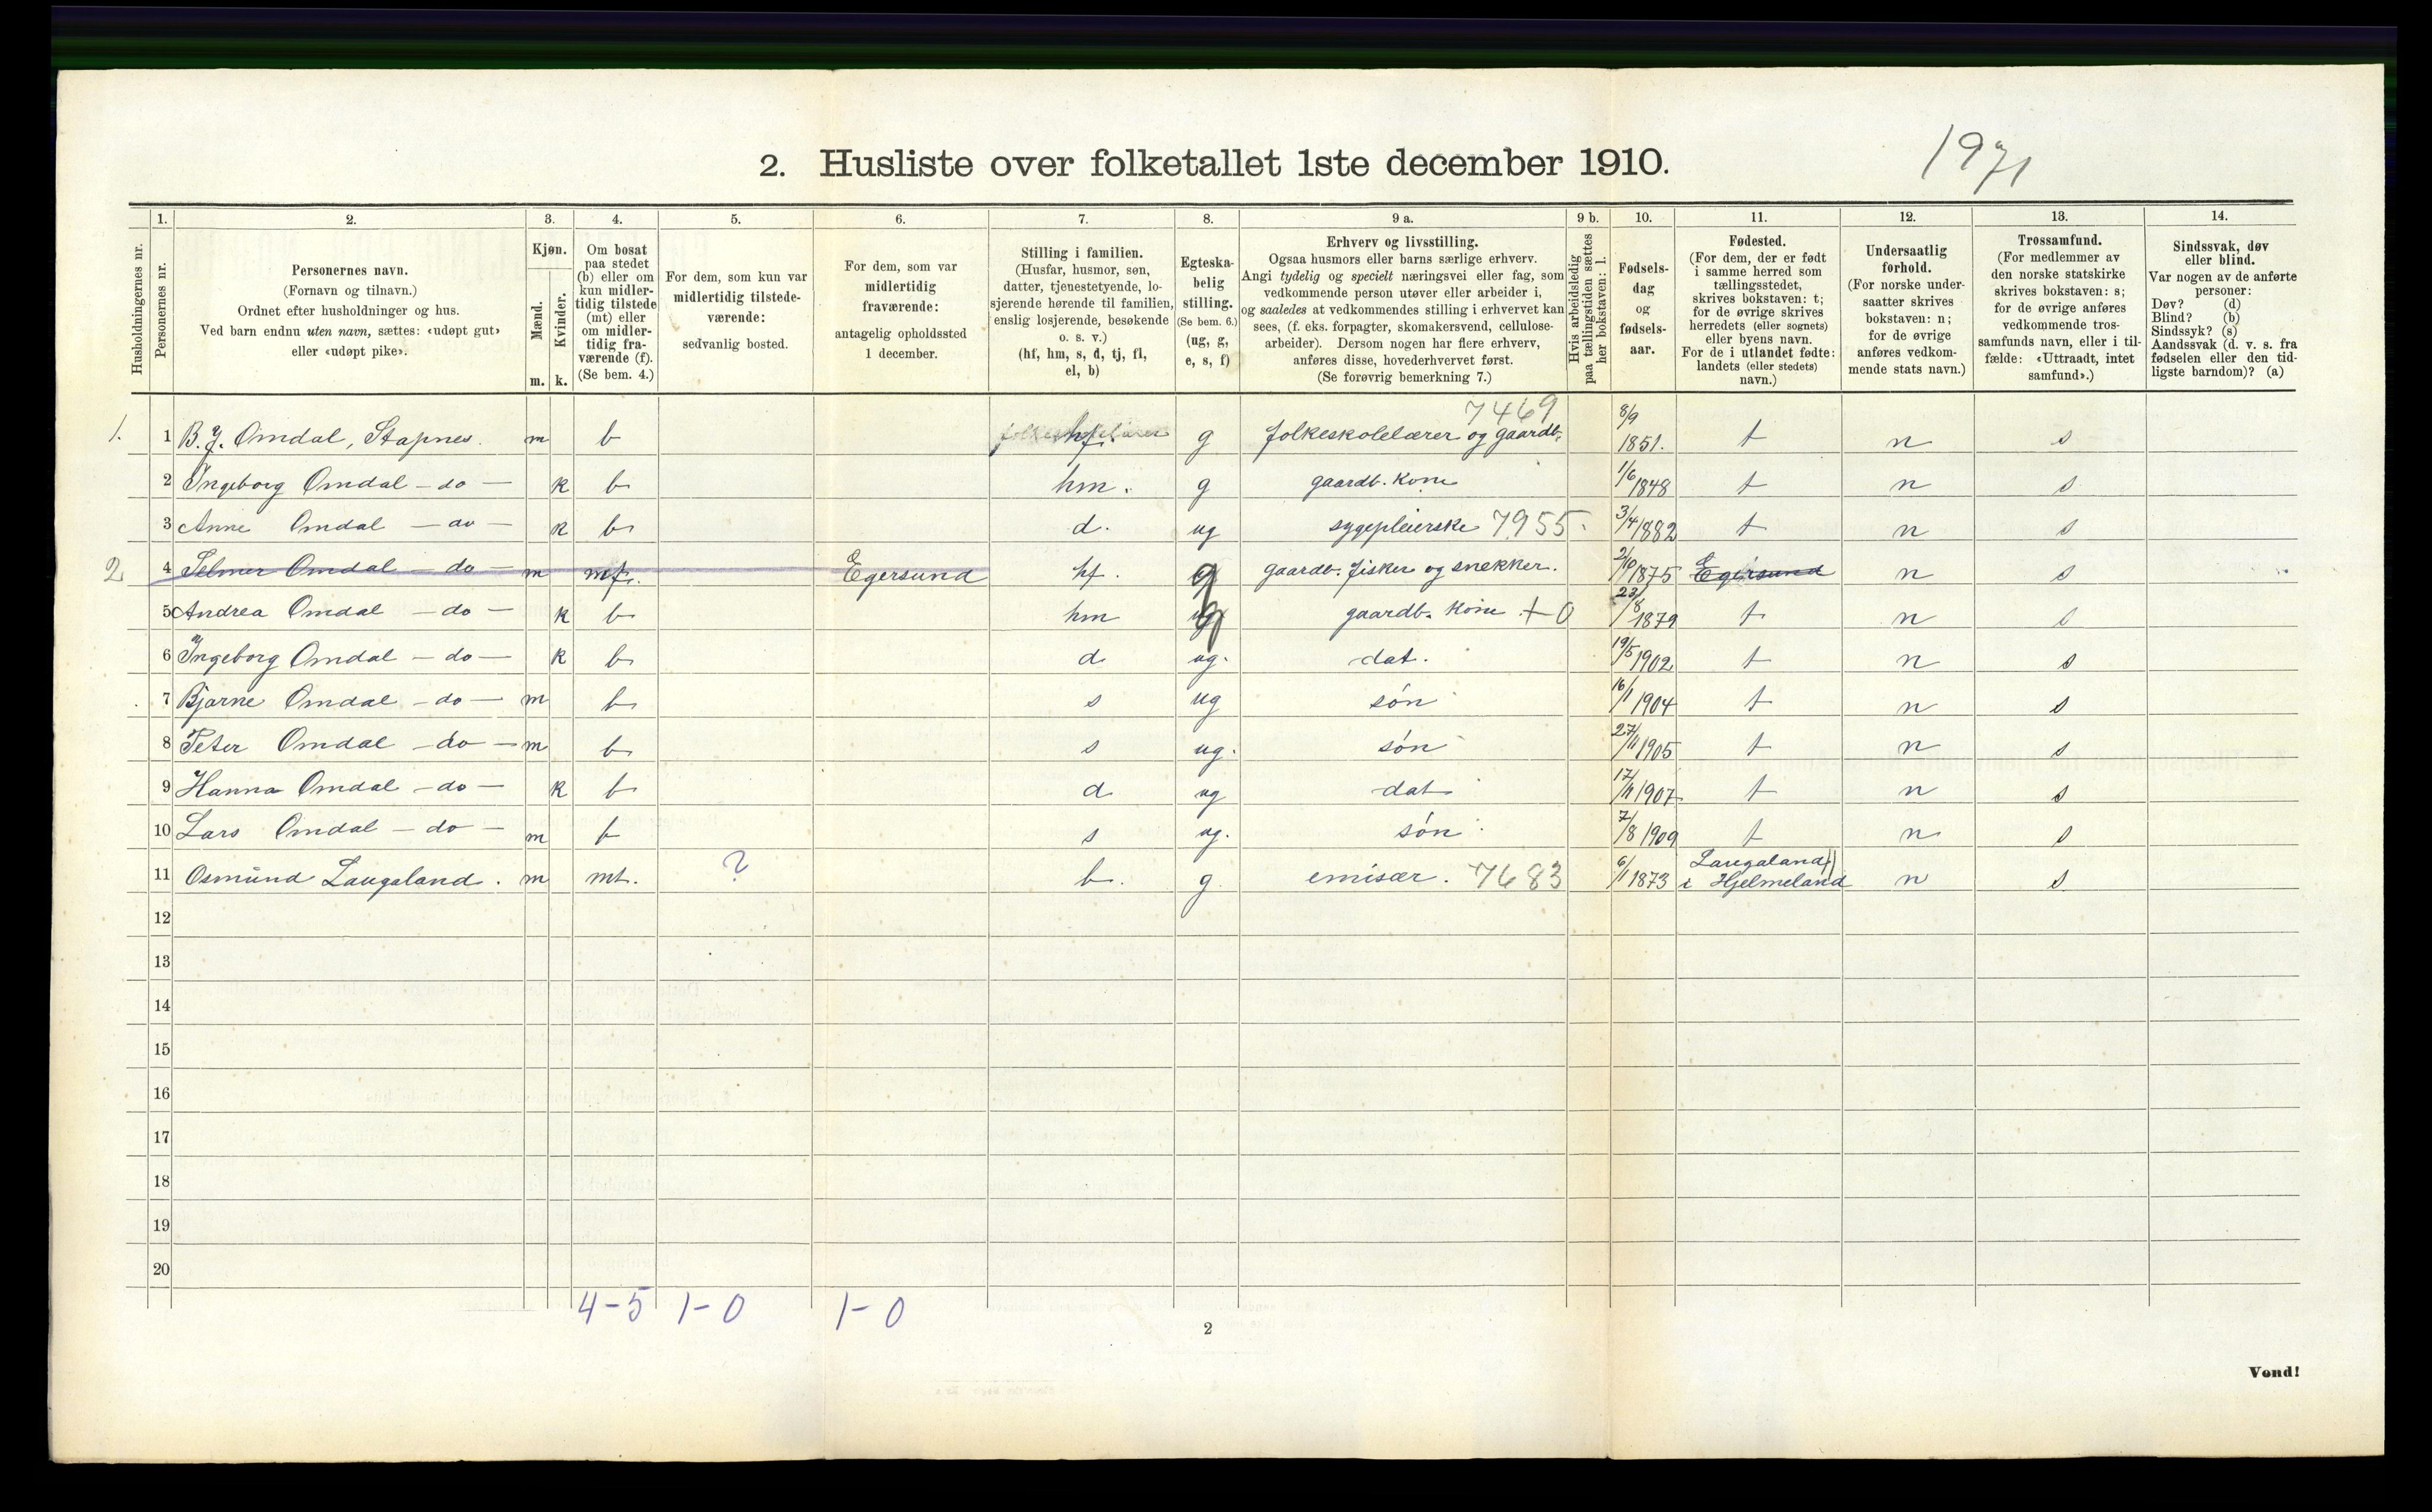 2. Husliste over folketallet 1ste december 1910.
1971
Husholdningernes nr.
1.
Personernes nr.
2.
Personernes navn.
(Fornavn og tilnavn.)
Ordnet efter husholdninger og hus.
Ved barn endnu uten navn, sættes: «udøpt gut»
eller «udøpt pike».
3.
Kjøn.
Mænd.
Kvinder.
m. k.
4.
Om bosat
paa stedet
(b) eller om
kun midler-
tidig tilstede
(mt) eller
om midler-
tidig fra-
værende (f).
(Se bem. 4.)
5.
For dem, som kun var
midlertidig tilstede-
værende:
sedvanlig bosted.
6.
For dem, som var
midlertidig
fraværende:
antagelig opholdssted
1 december.
7.
Stilling i familien.
(Husfar, husmor, søn,
datter, tjenestetyende, lo-
sjerende hørende til familien,
enslig losjerende, besøkende
o. s. v.)
(hf, hm, s, d, tj, fl,
el, b)
8.
Egteska-
belig
stilling.
(Se bem. 6.)
(ug, g,
e, s, f)
9 a.
Erhverv og livsstilling.
Ogsaa husmors eller barns særlige erhverv.
Angi tydelig og specielt næringsvei eller fag, som
vedkommende person utøver eller arbeider i,
og saaledes at vedkommendes stilling i erhvervet kan
sees, (f. eks. forpagter, skomakersvend, cellulose-
arbeider). Dersom nogen har flere erhverv,
anføres disse, hovederhvervet først.
(Se forøvrig bemerkning 7.)
9 b.
Hvis arbeidsledig
paa tællingstiden sættes
her bokstaven: l.
10.
Fødsels-
dag
og
fødsels-
aar.
11.
Fødested.
(For dem, der er født
i samme herred som
tællingsstedet,
skrives bokstaven: t;
for de øvrige skrives
herredets (eller sognets)
eller byens navn.
For de i utlandet fødte:
landets (eller stedets)
navn.)
12.
Undersaatlig
forhold.
(For norske under-
saatter skrives
bokstaven: n;
for de øvrige
anføres vedkom-
mende stats navn.)
13.
Trossamfund.
(For medlemmer av
den norske statskirke
skrives bokstaven: s;
for de øvrige anføres
vedkommende tros-
samfunds navn, eller i til-
fælde: «Uttraadt, intet
samfund».)
14.
Sindssvak, døv
eller blind.
Var nogen av de anførte
personer:
Døv? (d)
Blind? (b)
Sindssyk? (s)
Aandssvak (d. v. s. fra
fødselen eller den tid-
ligste barndom)? (a)
1. 1 B. J. Omdal, Stapnes. m b hf. g folkeskolelærer og gaardb. 7469 8/9 1851. t n s
2 Ingeborg Omdal - do - k b hm. g gaardb. kone 1/6 1848 t n s
3 Anne Omdal - do - k b d. ug sygepleierske 7955. 3/4 1882 t n s
2 4 Selmer Omdal - do - m mf. Egersund hf. g gaardb. fisker og snekker. 2/10 1875 Egersund n s
5 Andrea Omdal - do - k b hm g gaardb. kone + 0 23/8 1879 t n s
6 Ingeborg Omdal - do - k b d ug. dat. 19/5 1902 t n s
7 Bjarne Omdal - do - m b s ug søn 16/1 1904 t n s
8 Peter Omdal - do - m b s ug. søn 27/11 1905 t n s
9 Hanna Omdal - do - k b d ug dat 17/11 1907 t n s
10 Lars Omdal - do - m b s ug. søn 7/8 1909 t n s
11 Osmund Laugaland. m mt. ? b. g emisær. 7683 6/1 1873 Laugaland i Hjelmeland n s
12
13
14
15
16
17
18
19
20
4-5 1-0 1-0
2
Vend!